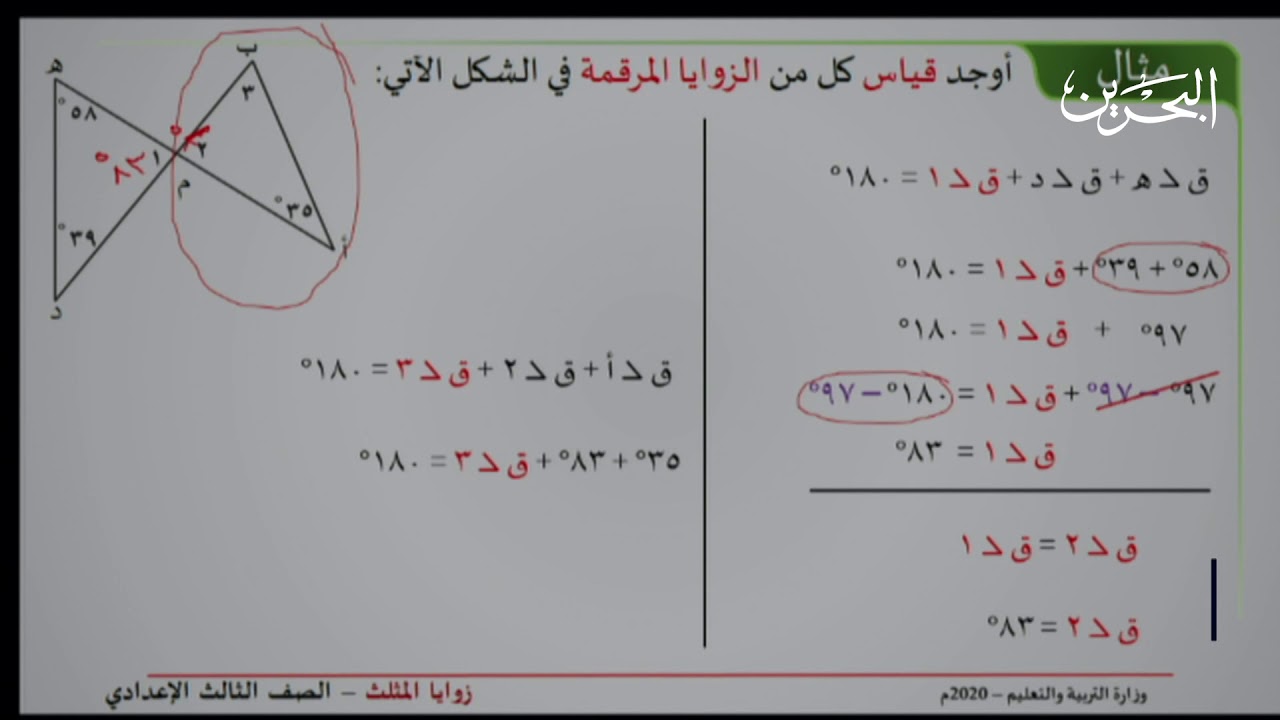 مثال
البحرين
أوجد قياس كل من الزوايا المرقمة في الشكل الآتي:
ق ∠ هـ + ق ∠ د + ق ∠ ١ = ١٨٠°
٥٨° + ٣٩° + ق ∠ ١ = ١٨٠°
٩٧° + ق ∠ ١ = ١٨٠°
٩٧° – ٩٧° + ق ∠ ١ = ١٨٠° – ٩٧°
ق ∠ ١ = ٨٣°
ق ∠ ٢ = ق ∠ ١
ق ∠ ٢ = ٨٣°
هـ
٥٨°
٣٩°
د
١
٨٣°
م
٢
ب
٣
٣٥°
أ
ق ∠ أ + ق ∠ ٢ + ق ∠ ٣ = ١٨٠°
٣٥° + ٨٣° + ق ∠ ٣ = ١٨٠°
وزارة التربية والتعليم – 2020م
زوايا المثلث – الصف الثالث الإعدادي